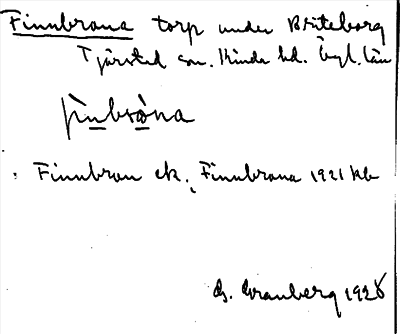 Finnbrona torp under Briteborg
Tjärstad sn. Kinda hd. Ögl. län
Finnbron ek. Finnbrona 1921 kb
G. Granberg 1928